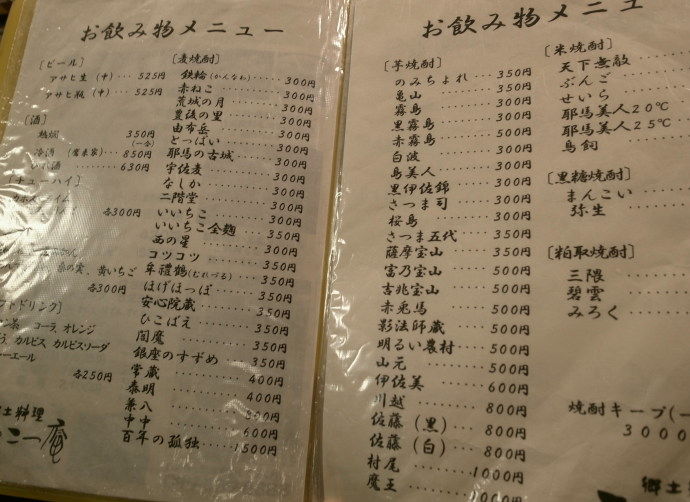 お飲み物メニュー
[ビール]
アサヒ生(中)‥525円
アサヒ瓶(中)‥525円
[酒]
熱燗 350円
(一合)
冷酒 850円
ひれ酒 630円
[チューハイ]
各300円
黄いちご
各300円
[ソフトドリンク]
コーラ、オレンジ
カルピス、カルピスソーダ
各250円
[麦焼酎]
鉄輪(かんなわ)‥300円
赤ねこ‥300円
荒城の月‥300円
豊後の里‥300円
由布岳‥300円
とっぱい‥300円
耶馬の古城‥300円
宇佐麦‥300円
なしか‥300円
二階堂‥300円
いいちこ‥300円
いいちこ全麹‥350円
西の星‥300円
コツコツ‥350円
牟禮鶴(むれづる)‥350円
ほげほっぽ‥350円
安心院蔵‥350円
ひこばえ‥350円
閻魔‥350円
銀座のすずめ‥350円
常蔵‥400円
泰明‥400円
兼八‥800円
中中‥600円
百年の孤独‥1500円
お飲み物メニュ
[芋焼酎]
のみちょれ‥350円
亀山‥300円
霧島‥300円
黒霧島‥300円
赤霧島‥500円
白波‥300円
島美人‥300円
黒伊佐錦‥300円
さつま司‥300円
桜島‥300円
さつま五代‥350円
薩摩宝山‥350円
富乃宝山‥500円
吉兆宝山‥500円
赤兎馬‥500円
影法師蔵‥500円
明るい農村‥500円
山元‥500円
伊佐美‥600円
川越‥800円
佐藤(黒)‥800円
佐藤(白)‥800円
村尾‥1000円
魔王‥1000円
[米焼酎]
天下無敵
ぶんご
せいら
耶馬美人20℃
耶馬美人25℃
鳥飼
[黒糖焼酎]
まんこい
弥生
[粕取焼酎]
三隈
碧雲
みろく
焼酎キープ(一
3000
郷土